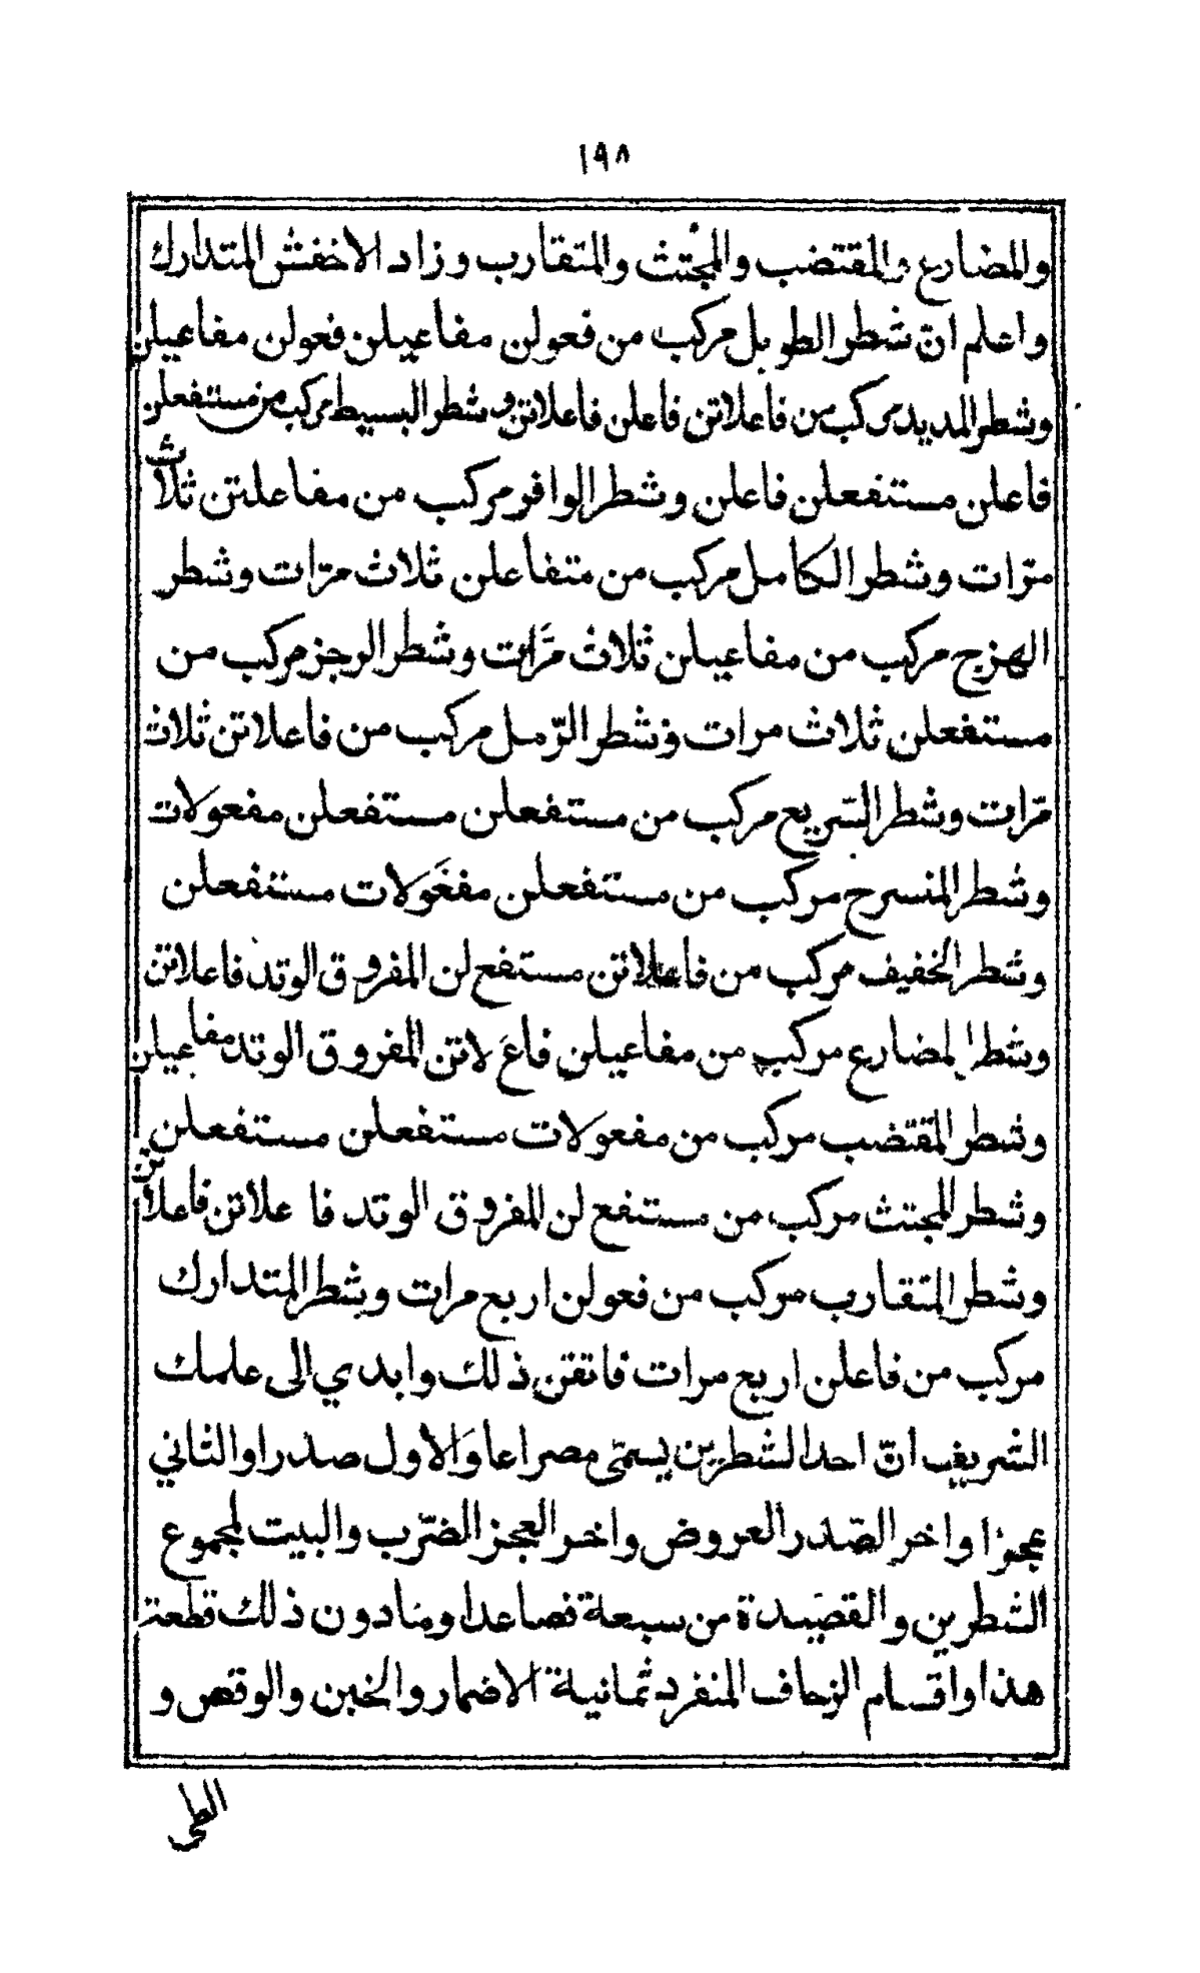 ١٩٨
والمضارع والمقتضب والمجتث والمتقارب وزاد الاخفش المتدارك
واعلم انّ شطر الطويل مركب من فعولن مفاعيلن فعولن مفاعيلن
وشطر المديد مركب من فاعلاتن فاعلن فاعلاتن وشطر البسيط مركب من مستفعلن
فاعلن مستفعلن فاعلن وشطر الوافر مركب من مفاعلتن ثلاث
مرّات وشطر الكامل مركب من متفاعلن ثلاث مرّات وشطر
الهزج مركب من مفاعيلن ثلاث مرَّات وشطر الرجز مركب من
مستفعلن ثلاث مرات وشطر الرّمل مركب من فاعلاتن ثلاث
مرّات وشطر السّريع مركب من مستفعلن مستفعلن مفعولات
وشطر المنسرح مركب من مستفعلن مفعولات مستفعلن
وشطر الخفيف مركب من فاعلاتن مستفع لن المفروق الوتد فاعلاتن
وشطر المضارع مركب من مفاعيلن فاعَ لاتن المفروق الوتد مفاعيلن
وشطر المقتضب مركب من مفعولات مستفعلن مستفعلن
وشطر المجتث مركب من مستفع لن المفروق الوتد فاعلاتن فاعلاتن
وشطر المتقارب مركب من فعولن اربع مرات وشطر المتدارك
مركب من فاعلن اربع مرات فاتقن ذلك وابدي الى علمك
الشريف انّ احد الشطرين يسمّى مصراعا والأول صدرا والثاني
عجزا واخر الصّدر العروض واخر العجز الضّرب والبيت لمجموع
الشطرين والقصيدة من سبعة فصاعدا ومادون ذلك قطعة
هذا واقسام الزحاف المنفرد ثمانية الاضمار والخبن والوقص و
الطى